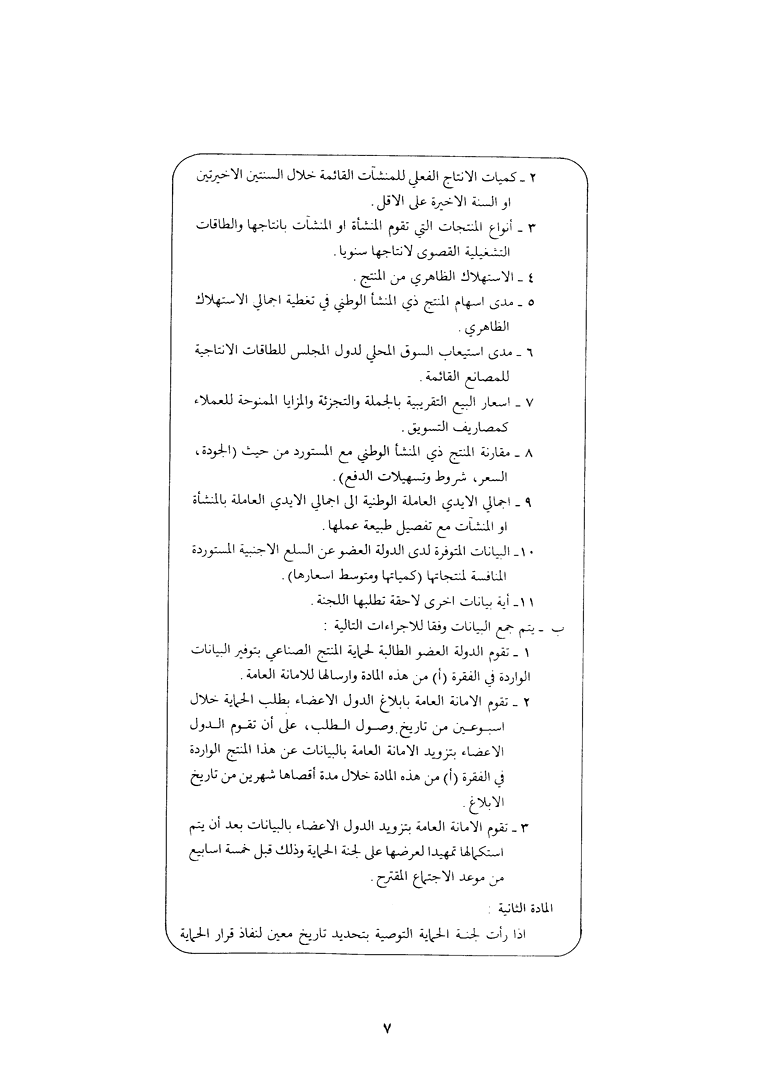 ٢ ـ كميات الانتاج الفعلي للمنشآت القائمة خلال السنتين الاخيرتين
او السنة الاخيرة على الاقل .
٣ ـ أنواع المنتجات التي تقوم المنشأة او المنشآت بانتاجها والطاقات
التشغيلية القصوى لانتاجها سنويا .
٤ ـ الاستهلاك الظاهري من المنتج .
٥ ـ مدى اسهام المنتج ذي المنشأ الوطني في تغطية اجمالي الاستهلاك
الظاهري .
٦ ـ مدى استيعاب السوق المحلي لدول المجلس للطاقات الانتاجية
للمصانع القائمة .
٧ ـ اسعار البيع التقريبية بالجملة والتجزئة والمزايا الممنوحة للعملاء
كمصاريف التسويق .
٨ ـ مقارنة المنتج ذي المنشأ الوطني مع المستورد من حيث (الجودة،
السعر، شروط وتسهيلات الدفع) .
٩ ـ اجمالي الايدي العاملة الوطنية الى اجمالي الايدي العاملة بالمنشأة
او المنشآت مع تفصيل طبيعة عملها .
١٠ـ البيانات المتوفرة لدى الدولة العضو عن السلع الاجنبية المستوردة
المنافسة لمنتجاتها (كمياتها ومتوسط اسعارها) .
١١ـ أية بيانات اخرى لاحقة تطلبها اللجنة .
ب ـ يتم جمع البيانات وفقا للاجراءات التالية :
١ ـ تقوم الدولة العضو الطالبة لحماية المنتج الصناعي بتوفير البيانات
الواردة في الفقرة (أ) من هذه المادة وارسالها للامانة العامة .
٢ ـ تقوم الامانة العامة بابلاغ الدول الاعضاء بطلب الحماية خلال
اسبوعين من تاريخ وصول الطلب، على أن تقوم الدول
الاعضاء بتزويد الامانة العامة بالبيانات عن هذا المنتج الواردة
في الفقرة (أ) من هذه المادة خلال مدة أقصاها شهرين من تاريخ
الابلاغ .
٣ ـ تقوم الامانة العامة بتزويد الدول الاعضاء بالبيانات بعد أن يتم
استكمالها تمهيدا لعرضها على لجنة الحماية وذلك قبل خمسة اسابيع
من موعد الاجتماع المقترح .
المادة الثانية :
اذا رأت لجنة الحماية التوصية بتحديد تاريخ معين لنفاذ قرار الحماية
٧